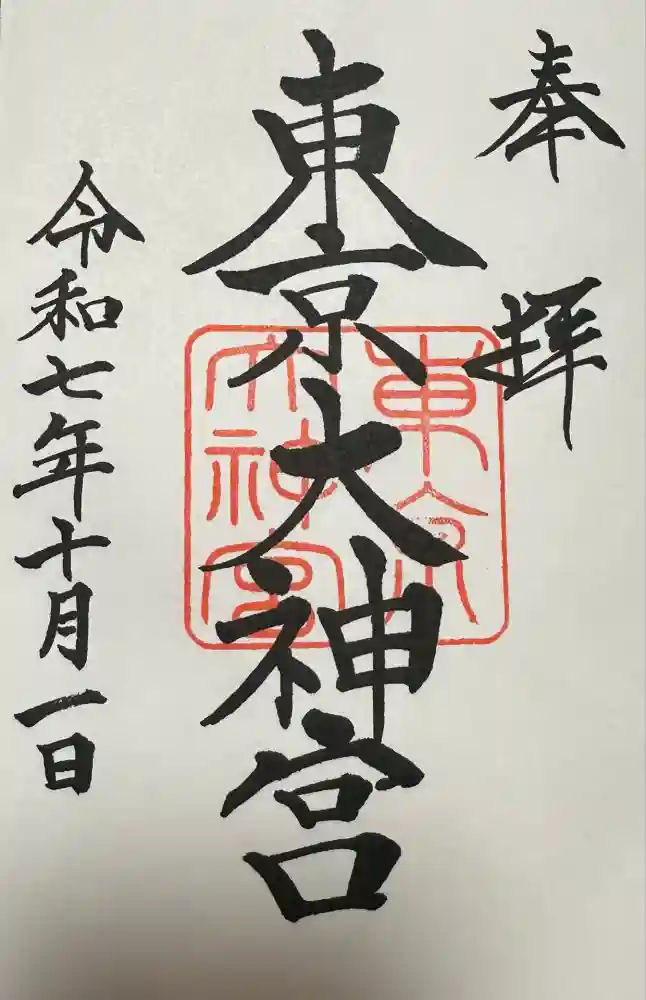 奉拝
東京大神宮
東京
大神宮
令和七年十月一日